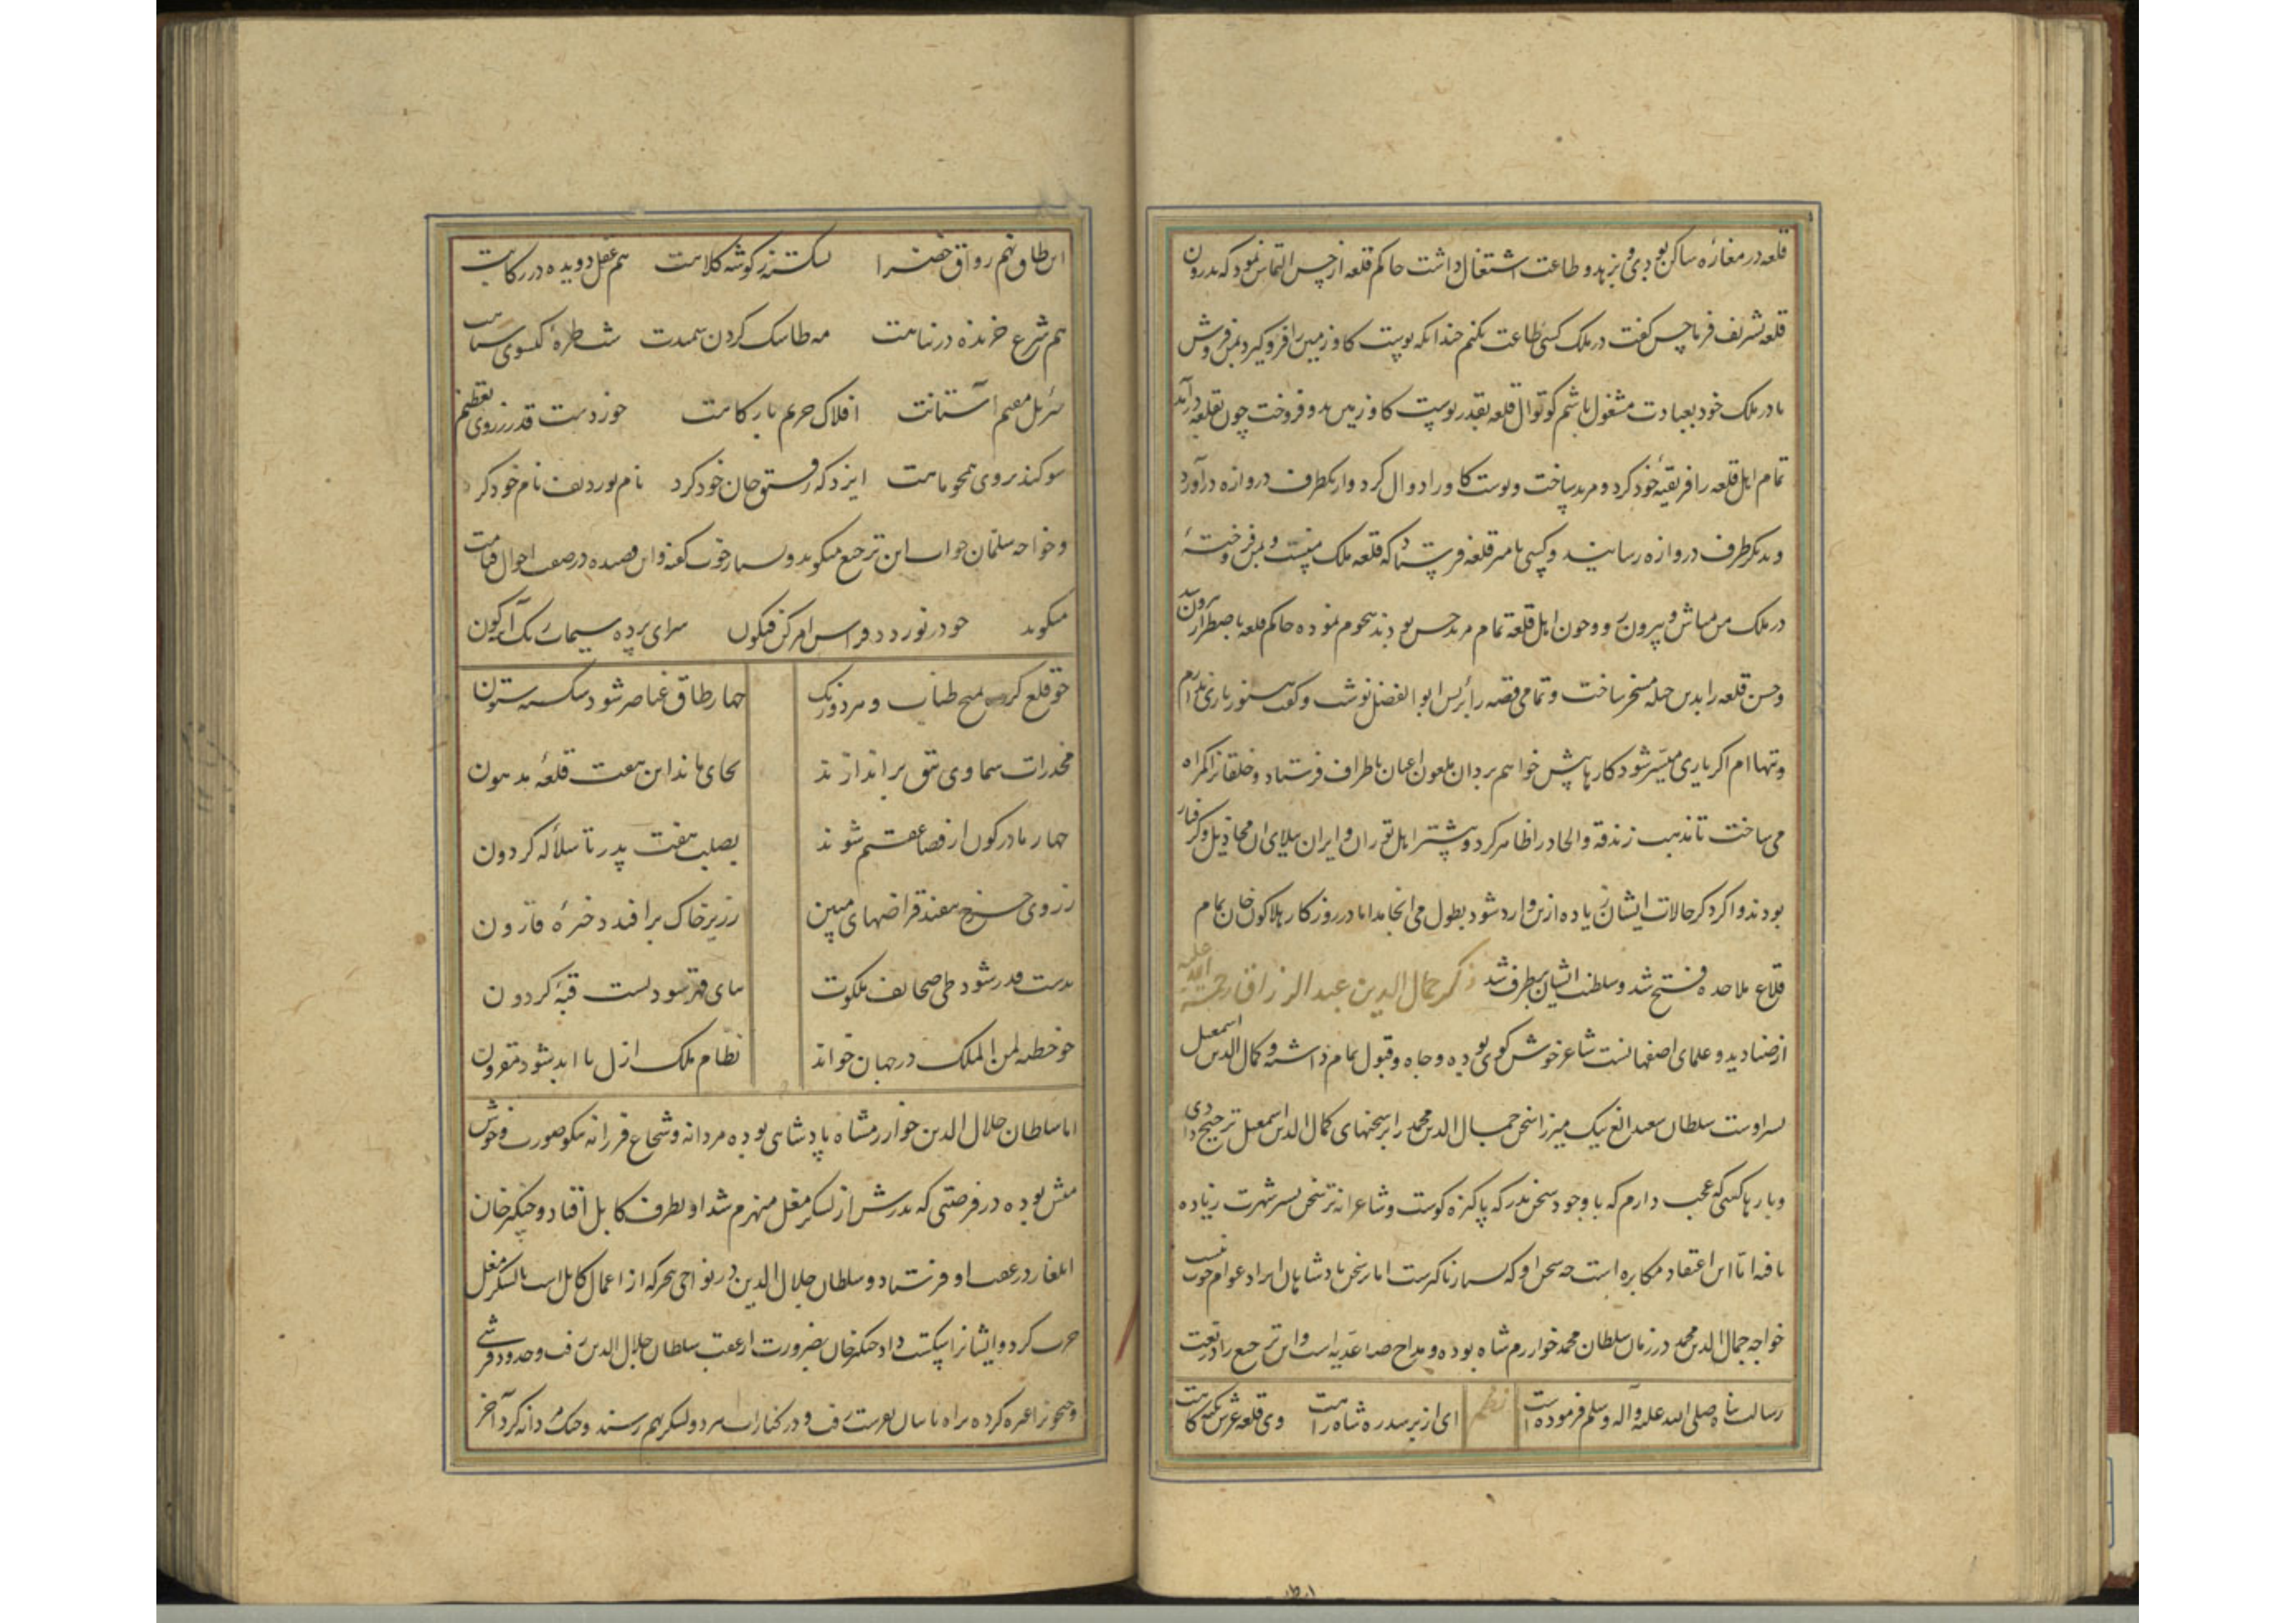 قلعه در مغاره ساکن بودی و بزهد و طاعت اشتغال داشت حاکم قلعه از حسن التماس نمود که بدرون
قلعه تشریف فرما حسن گفت در ملک کسی طاعت نکنم چندانکه پوست کاو زمین را فرو کیرد بمن فروش
تا در ملک خود بعبادت مشغول باشم کوتوال قلعه بقدر پوست کاو زمین بدو فروخت چون بقلعه درآمد
تمام اهل قلعه را فریفتهٔ خود کرد و مرید ساخت و پوست کاو را دوال کرد و از یکطرف دروازه درآورد
و بدیکر طرف دروازه رسانید و کسی بامیر قلعه فرستاد که قلعه ملک منست و بمن فروختهٔ
در ملک من مباش و بیرون رو و چون اهل قلعه تمام مرید حسن بودند هجوم نموده حاکم قلعه باضطرار بیرون
و حسن قلعه را بدین حیله مسخر ساخت و تمامی قصه را برئیس ابو الفضل نوشت و گفت هنوز یاری ندارم
و تنها ام اکر یاری میسر شود کارها پیش خواهم برد آن ملعون داعیان باطراف فرستاد و خلقانرا کمراه
می ساخت تا مذهب زندقه و الحاد را ظاهر کرد و بیشتر اهل توران و ایران ببلای آن مخاذیل گرفتار
بودند و اکر ذکر حالات ایشان زیاده ازین وارد شود بطول می انجامد اما در روزکار هلاکو خان تمام
قلاع ملاحده فتح شد و سلطنت ایشان برطرف شد ذکر جمال الدین عبد الرزاق رحمة الله علیه
از صنادید و علمای اصفهانست شاعر خوش کوی بوده و جاه و قبول تمام داشته و کمال الدین اسمعیل
پسر اوست سلطان سعید الغ بیک میرزا سخن جمال الدین محمد را بر سخنهای کمال الدین اسمعیل ترجیح دادی
و بارها گفتی که عجب دارم که با وجود سخن پدر که پاکیزه کوست و شاعرانه تر سخن پسر شهرت زیاده
یافته اما این اعتقاد مکابره است چه سخن او که بسیار نازکست اما سخن پادشاهان ایراد عوام خوب نیست
خواجه جمال الدین محمد در زمان سلطان محمد خوارزم شاه بوده و مداح صاعدیه است و این ترجیع را در نعت
رسالت پناه صلی الله علیه و آله و سلم فرموده است نظم ای از بر سدره شاه راهت وی قلعه عرش تکیه کاهت
ای طاق نهم رواق خضرا بشکسته ز کوشه کلاهت هم عقل دویده در رکابت
هم شرع خزیده در پناهت مه طاسک کردن سمندت شب طرهٔ کیسوی سیاهت
جبریل مقیم آستانت افلاک حریم بارکاهت خوردست قدر ز روی تعظیم
سوکند بروی همچو ماهت ایزد که رقیب جان خرد کرد نام تو ردیف نام خود کرد
و خواجه سلمان جواب این ترجیع میکوید و بسیار خوب کفته و این قصیده در صفت احوال قیامت
میکوید چو در نوردد فراش امر کن فیکون سرای پرده سیماب رنک آینه کون
چو قلع کرد میخ طناب و مرد و رنک چهار طاق عناصر شود شکسته ستون
مخدرات سماوی تتق براندازند بجای ماند این هفت قلعهٔ مدهون
چهار مادر کون از قضا عقیم شوند بصلب هفت پدر تا سلاله کردون
ز روی چرخ بیفتد قراضهای مبین ز زیر خاک برافتد ذخیرهٔ قارون
بدست قدر شود طی صحائف ملکوت بپای قهر شود پست قبهٔ کردون
چو خطبه لمن الملک در جهان خواند نظام ملک ازل با ابد شود مقرون
اما سلطان جلال الدین خوارزمشاه پادشاهی بوده مردانه و شجاع فرزانه نیکو صورت و خوش
منش بوده در فرصتی که پدرش از لشکر مغل منهزم شد او بطرف کابل افتاد و چنکیز خان
ایلغار در عقب او فرستاد و سلطان جلال الدین در نواحی که از اعمال کابل است با لشکر مغل
حرب کرد و ایشانرا شکست داد چنکیز خان بضرورت از عقب سلطان جلال الدین رفت و حدود قرشی
و جیحون را عبره کرده براه بامیان بغزنین رفت و در کنار آب هر دو لشکر بهم رسیدند و جنک مردانه کرد آخر